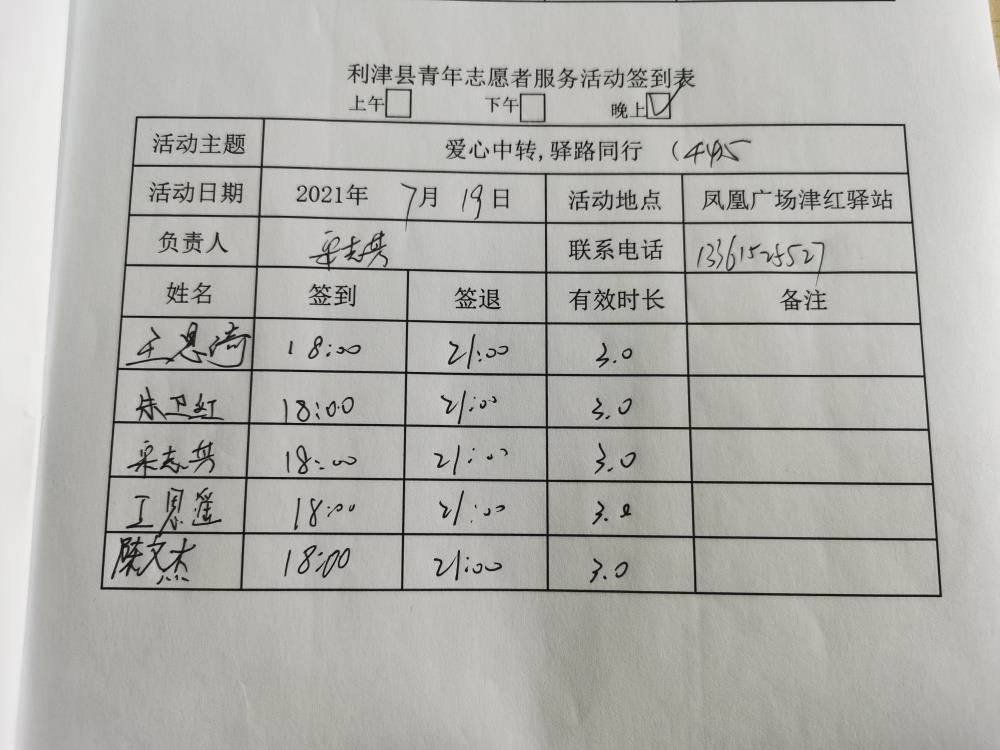 利津县青年志愿者服务活动签到表
上午 下午 晚上
活动主题 爱心中转,驿路同行 (495
活动日期 2021年 7月 19日 活动地点 凤凰广场津红驿站
负责人 宋志英 联系电话 13361525527
姓名 签到 签退 有效时长 备注
王恩 18:00 21:00 3.0
朱卫红 18:00 21:00 3.0
宋志英 18:00 21:00 3.0
丁恩瑶 18:00 21:00 3.0
陈文杰 18:00 21:00 3.0